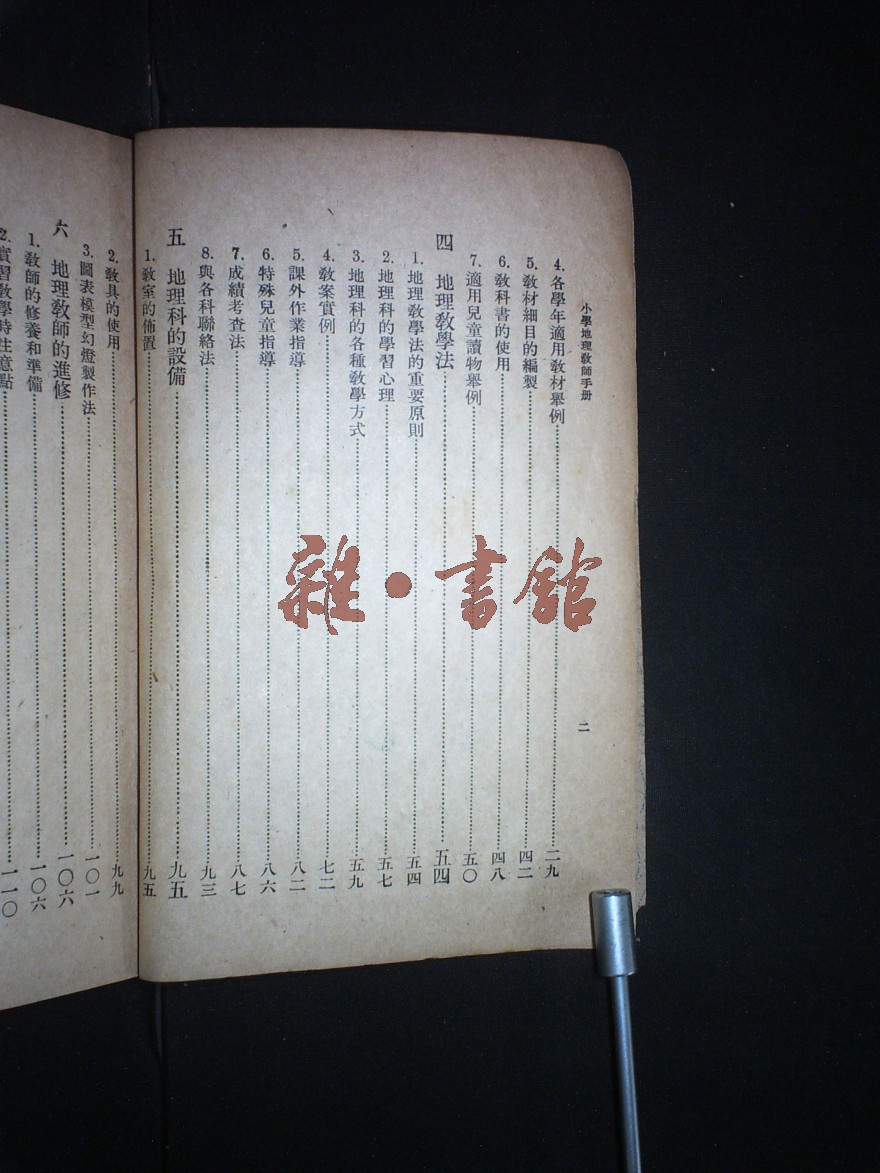 小學地理教師手册
二
4. 各學年適用教材舉例……二九
5. 教材細目的編製……四二
6. 教科書的使用……四八
7. 適用兒童讀物舉例……五〇
四 地理教學法……五四
1. 地理教學法的重要原則……五四
2. 地理科的學習心理……五七
3. 地理科的各種教學方式……五九
4. 教案實例……七二
5. 課外作業指導……八二
6. 特殊兒童指導……八六
7. 成績考查法……八七
8. 與各科聯絡法……九三
五 地理科的設備……九五
1. 教室的佈置……九五
2. 教具的使用……九九
3. 圖表模型幻燈製作法……一〇一
六 地理教師的進修……一〇六
1. 教師的修養和準備……一〇六
2. 實習教學時注意點……一一〇
雜·書館